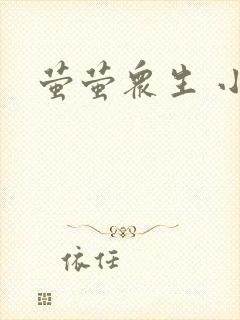 萤萤众生 小
依任